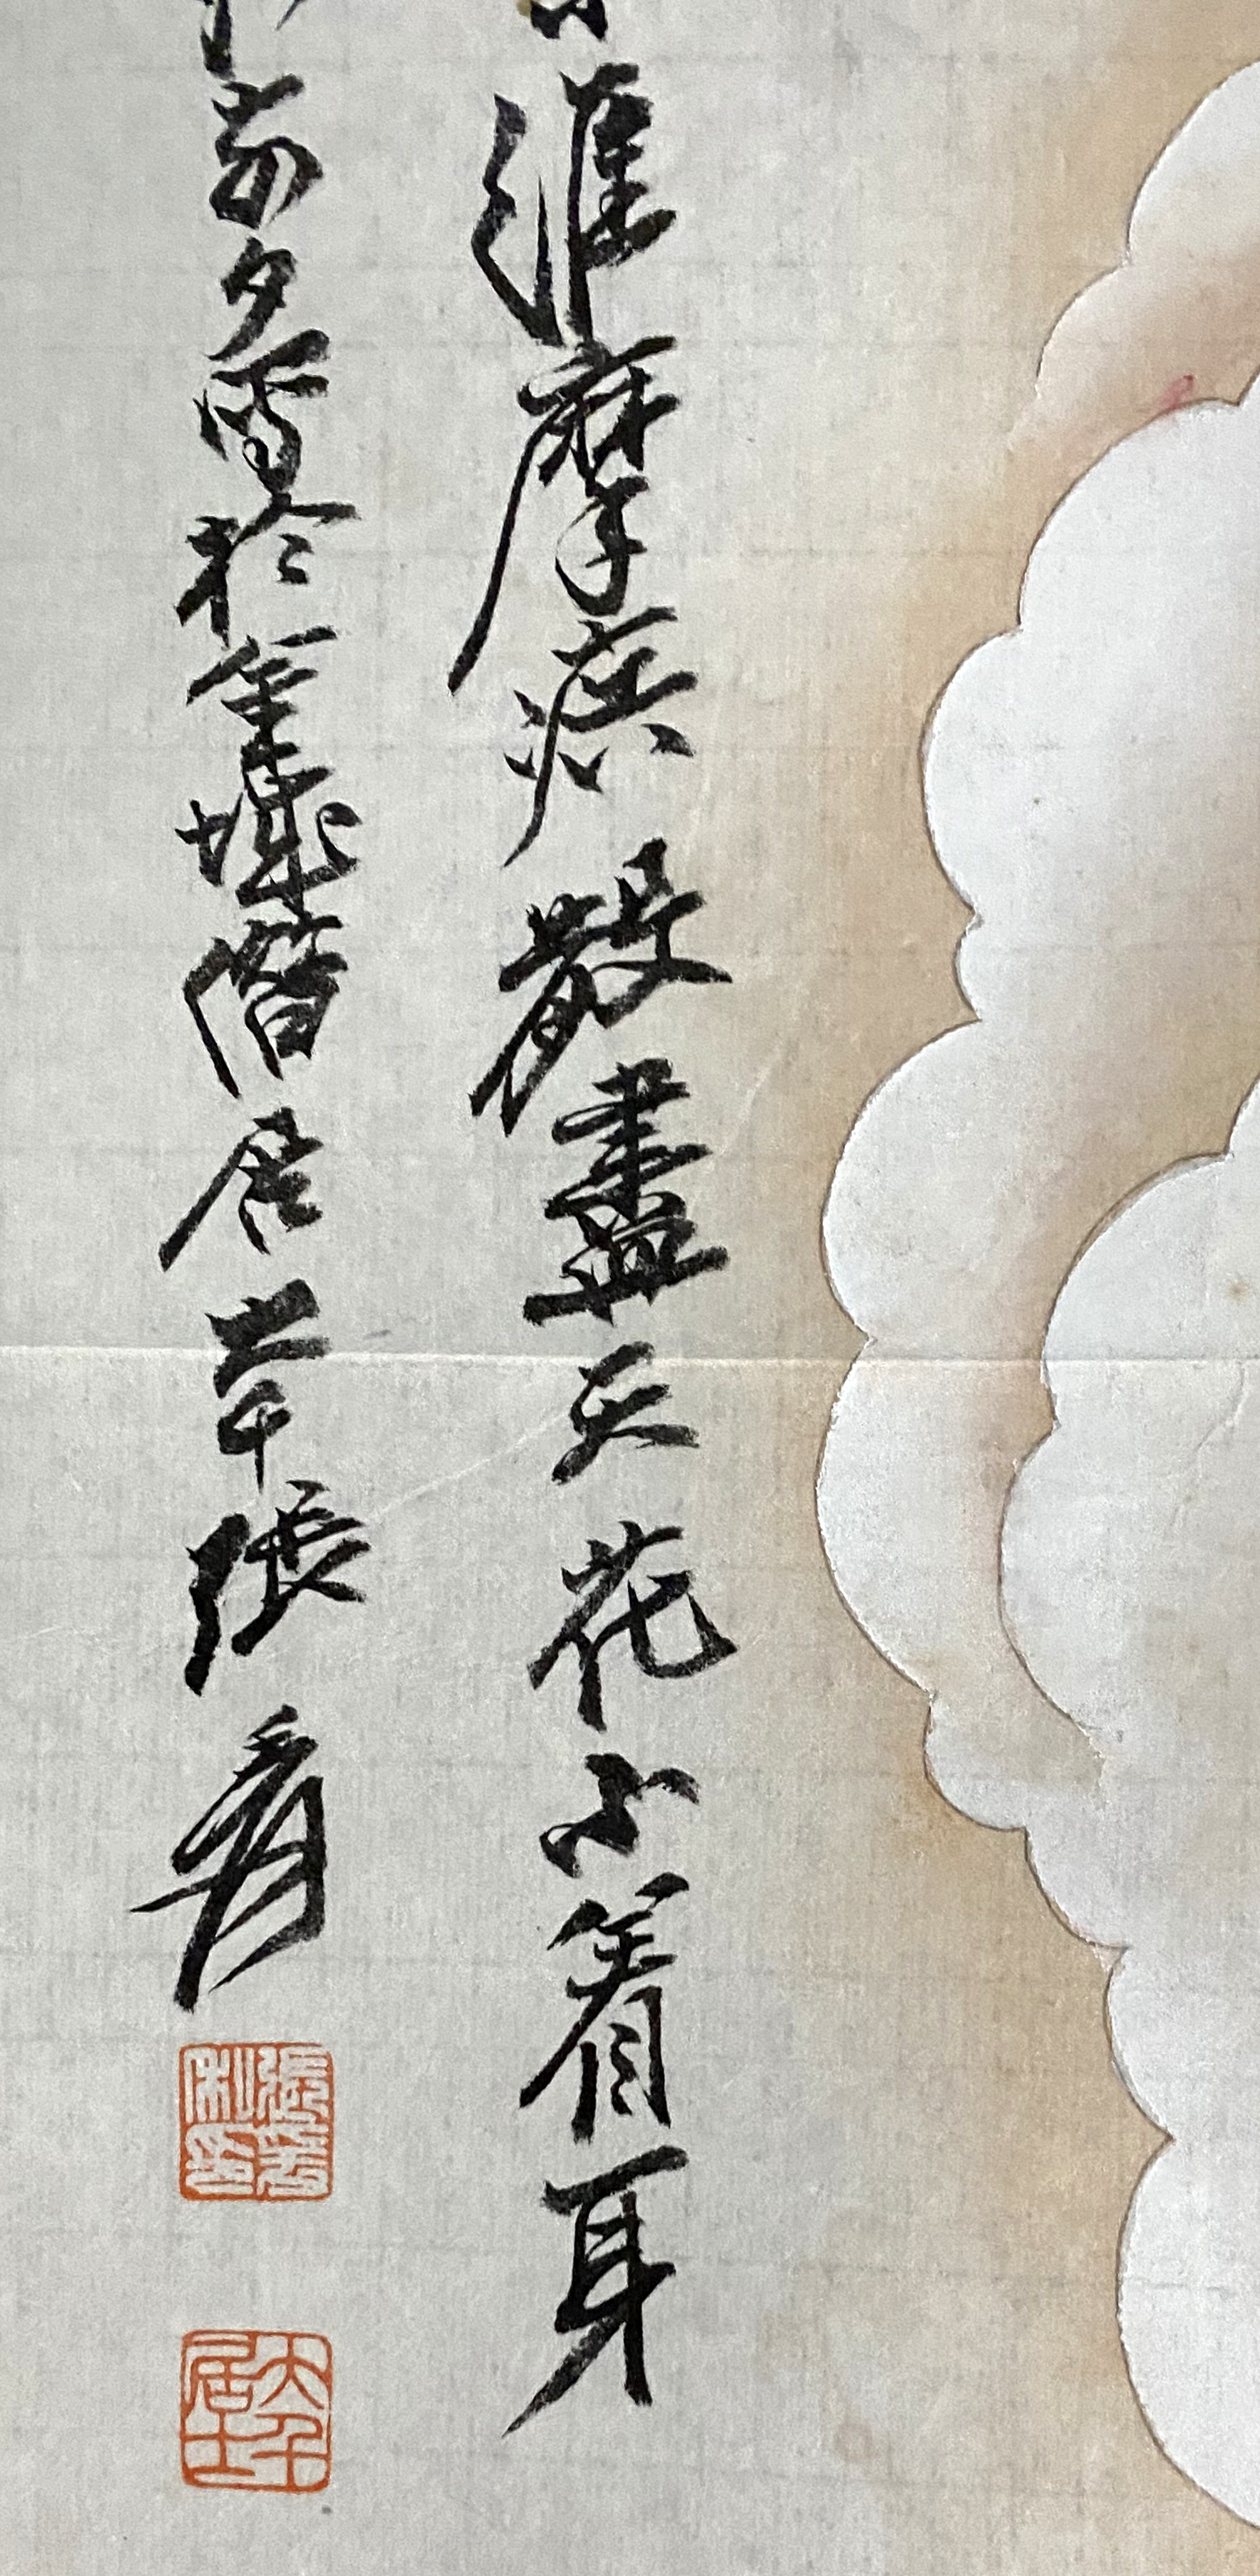 維摩疾散盡天花不著身
前夕寫於金城僧居大千張爰
張爰私印
大千居士